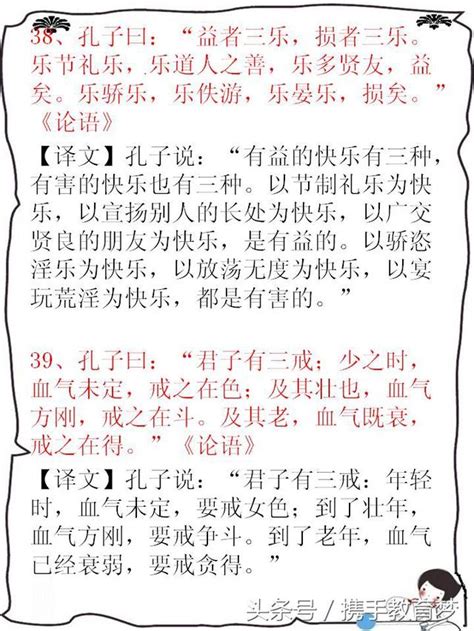 38、孔子曰：“益者三乐，损者三乐。
乐节礼乐，乐道人之善，乐多贤友，益
矣。乐骄乐，乐佚游，乐晏乐，损矣。”
《论语》
【译文】孔子说：“有益的快乐有三种，
有害的快乐也有三种。以节制礼乐为快
乐，以宣扬别人的长处为快乐，以广交
贤良的朋友为快乐，是有益的。以骄恣
淫乐为快乐，以放荡无度为快乐，以宴
玩荒淫为快乐，都是有害的。”
39、孔子曰：“君子有三戒；少之时，
血气未定，戒之在色；及其壮也，血气
方刚，戒之在斗。及其老，血气既衰，
戒之在得。”《论语》
【译文】孔子说：“君子有三戒：年轻
时，血气未定，要戒女色；到了壮年，
血气方刚，要戒争斗。到了老年，血气
已经衰弱，要戒贪得。”
头条号/携手教育梦